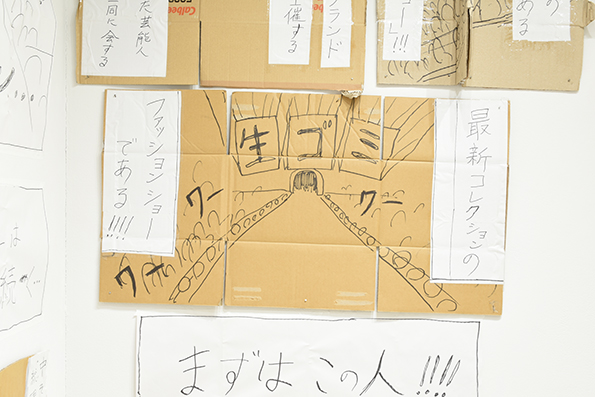 た芸能人
に会する
ランド
催する
ー」!!!
の
ある
最新コレクションの
生ゴミ
ワー
ワー
ワー
ファッションショー
である!!!!
は
続く…
まずはこの人!!!!
Calbee
Calbee